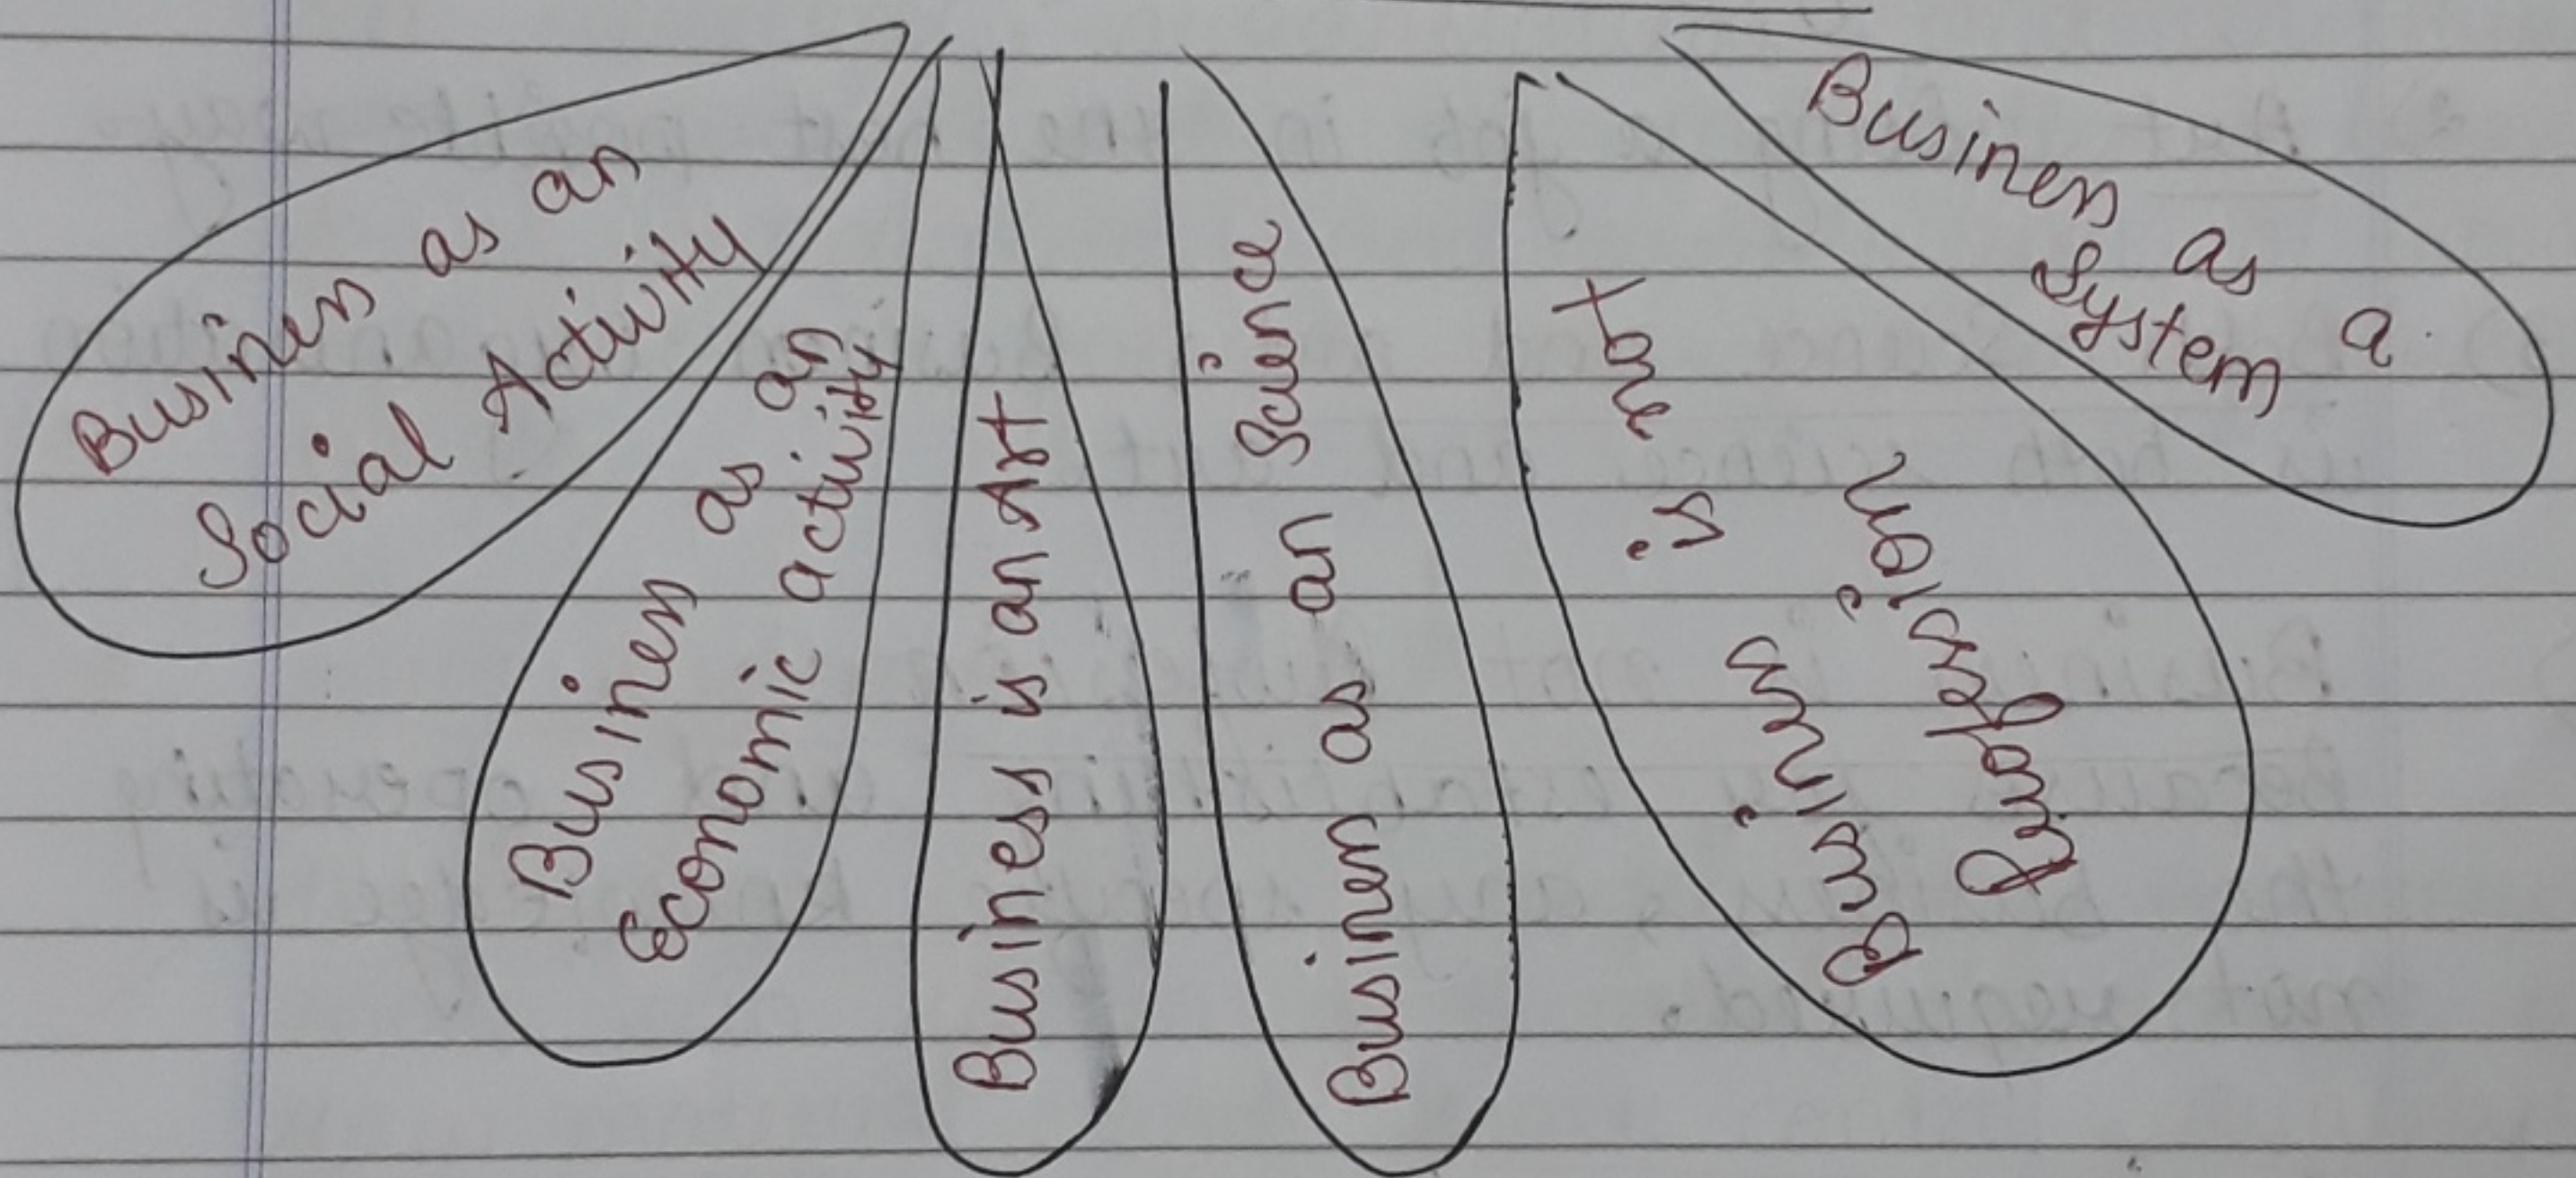 Business as an
Social Activity
Business as an
Economic activity
Business is an Art
Business as an Science
Business is not
Profession
Business as a
System